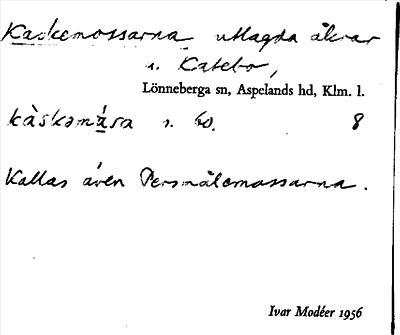 Kaskemossarna uttagda åkrar
i. Katebo,
Lönneberga sn, Aspelands hd, Klm. l.
kàskəmåsa s. bo. 8
Kallas även Persmålemossarna.
Ivar Modéer 1956